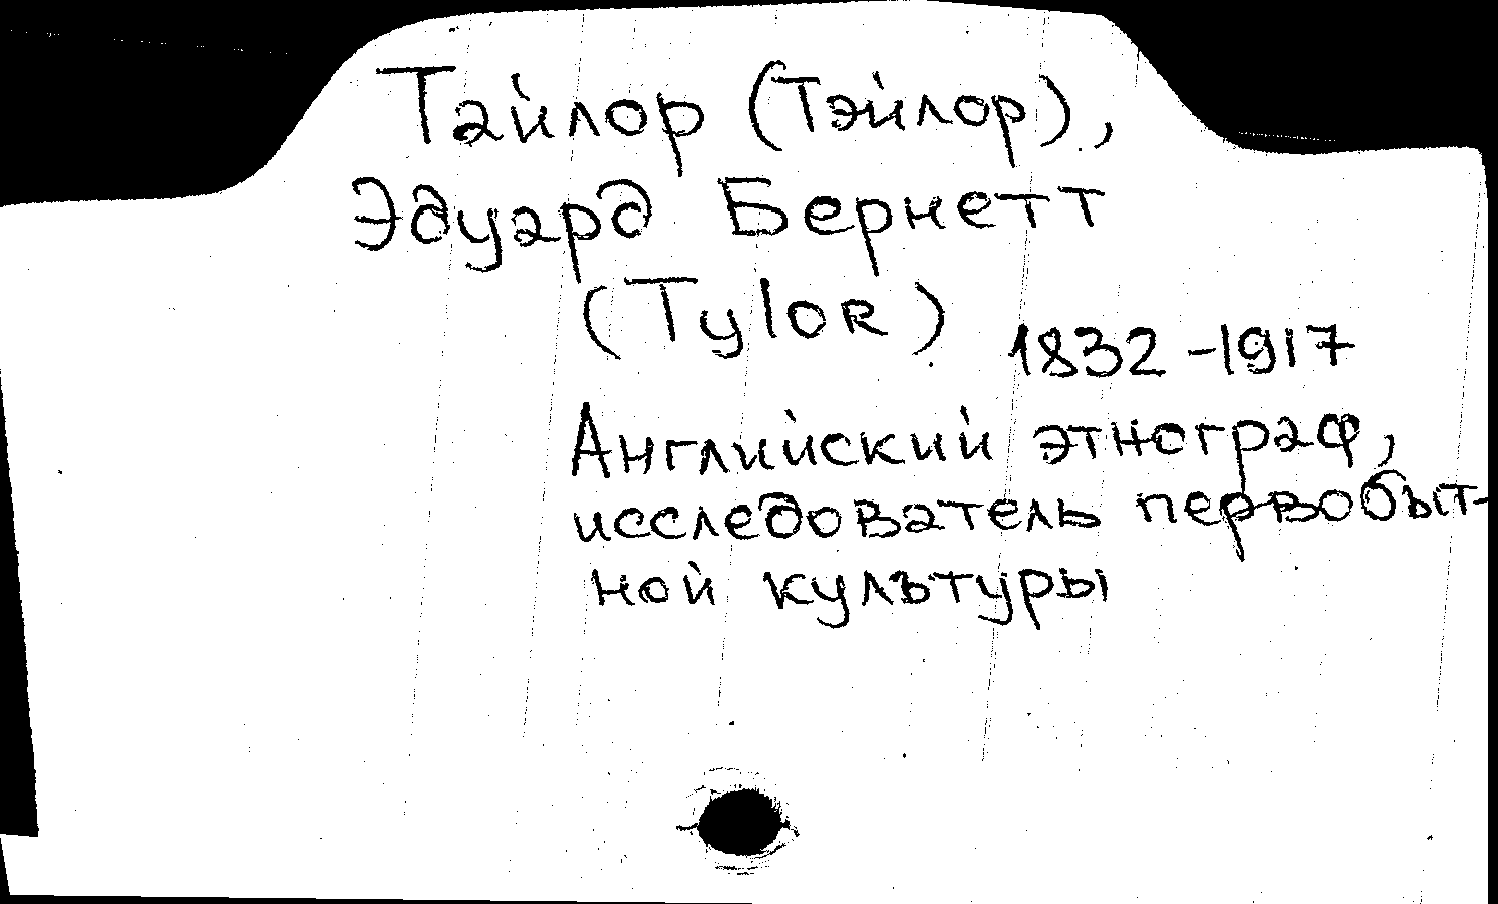 Тайлор (Тэйлор),
Эдуард Бернетт
(Tylor)
1832-1917
Английский этнограф,
исследователь первобыт-
ной культуры